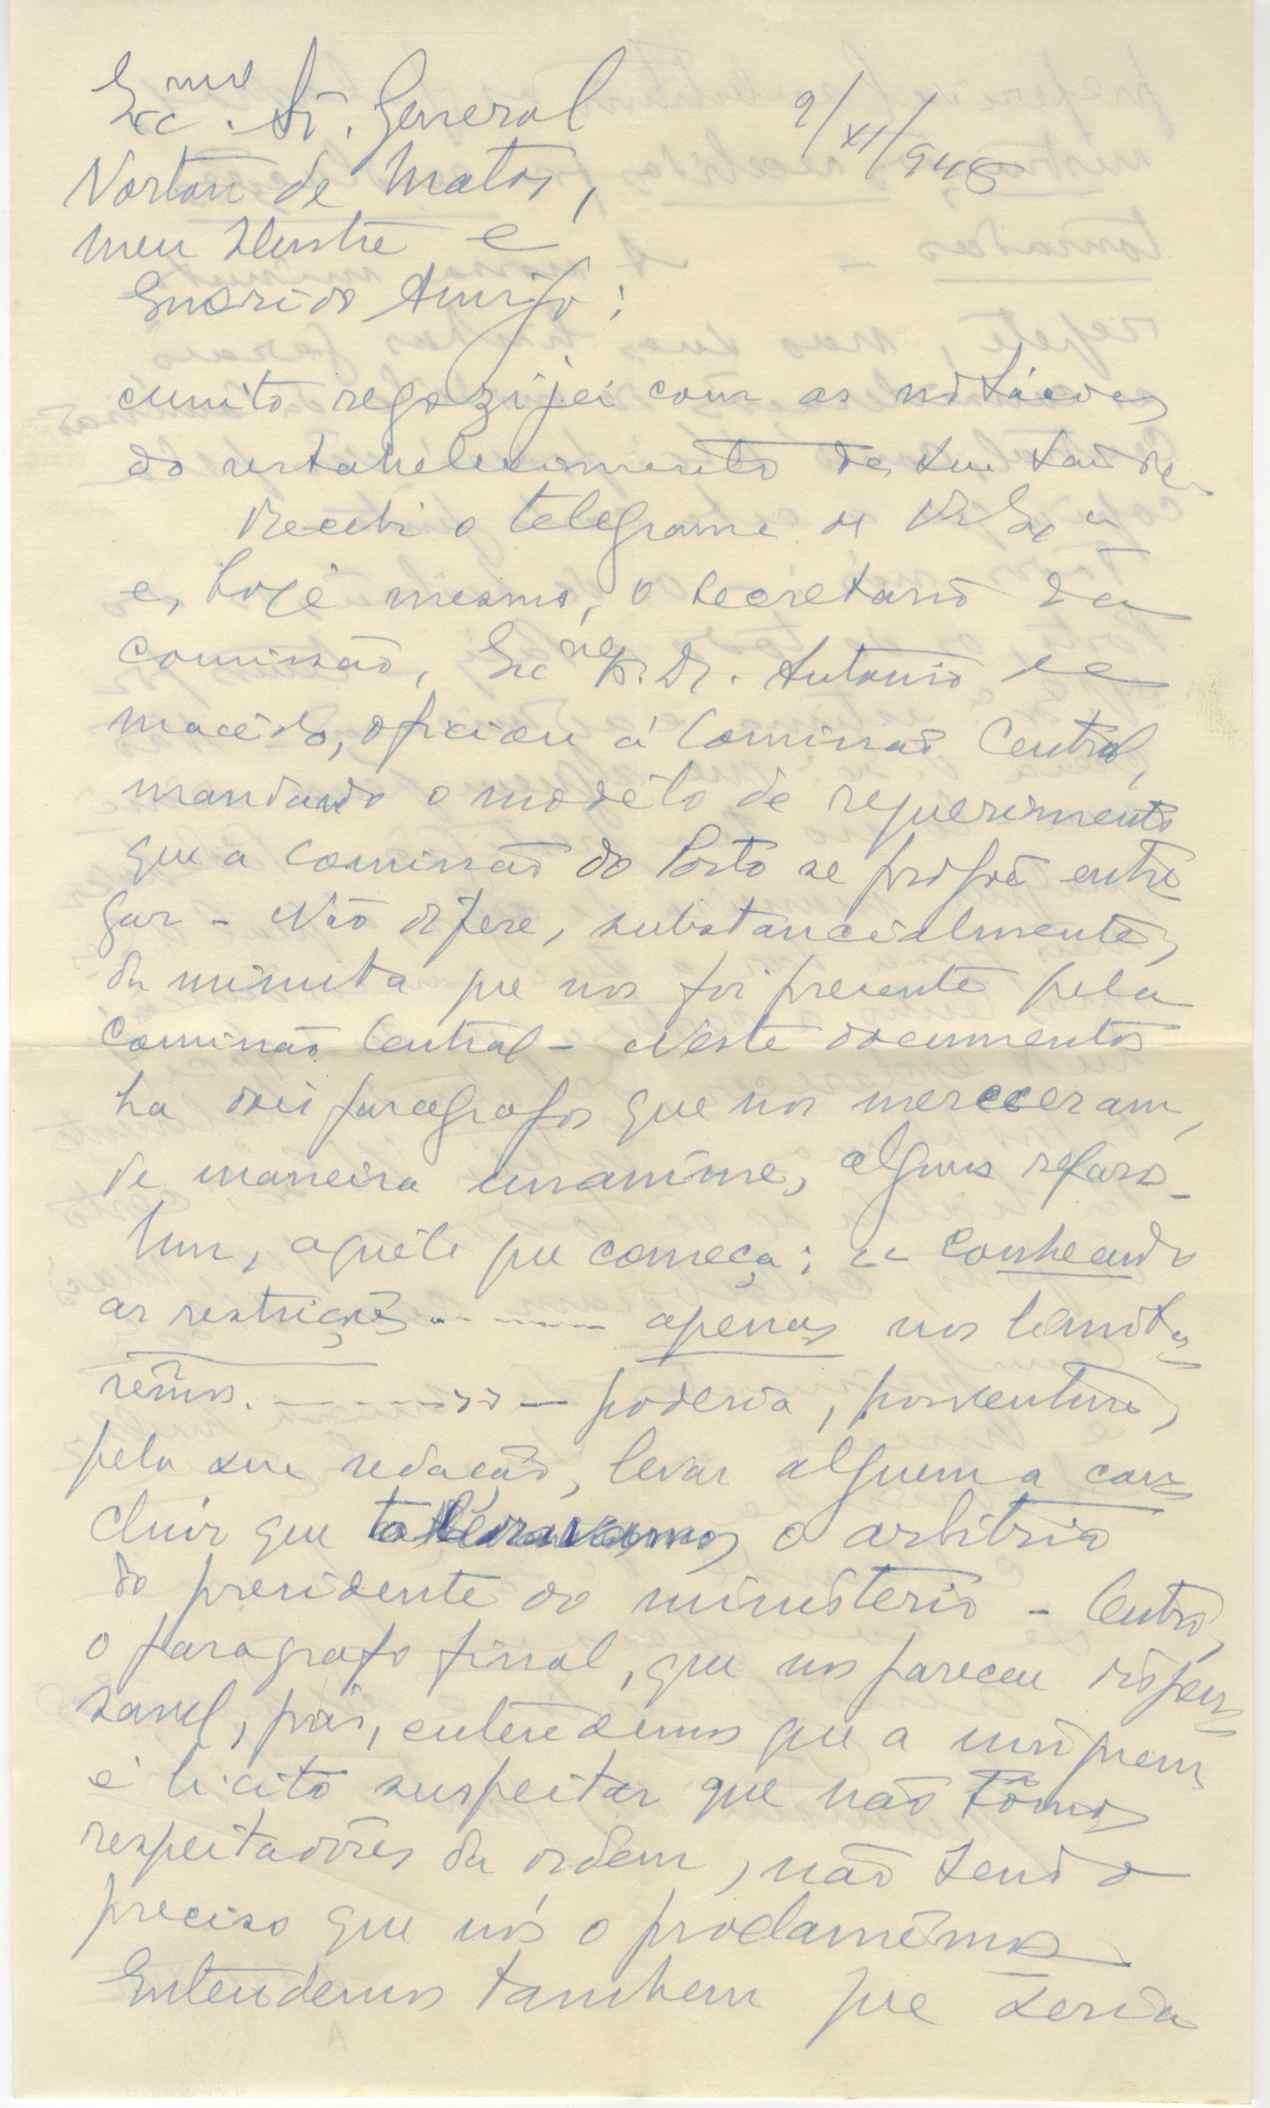 Exc.mo Sr. General
9/XI/948
Norton de Matos,
meu Ilustre e
Querido Amigo:
muito regozijei com as notícias
do restabelecimento de sua saúde.
Recebi o telegrama de V. Exca
e, hoje mesmo, o secretario da
comissão, Exc.mo Sr. Dr. Antonio de
Macêdo, oficiou á Comissão Central,
mandando o modêlo de requerimento
que a Comissão do Porto se propõe entre
gar - Não difere, substancialmente,
da minuta que nos foi presente pela
Comissão Central - Neste documento
ha dois paragrafos que nos mereceram,
de maneira unanime, alguns reparos -
Um, aquêle que começa: "Conhecendo
as restrições ------- apenas nos limita-
rêmos. ------" - poderia, porventura,
pela sua redação, levar alguem a con
cluir que toleravamos o arbitrio
do presidente do ministerio - Outro,
o paragrafo final, que nos pareceu dispen
savel, pois, entendemos que a ninguem
é licito suspeitar que não sômos
respeitadôres da ordem, não sendo
preciso que nós o proclamêmos
Entendemos tambem que seria